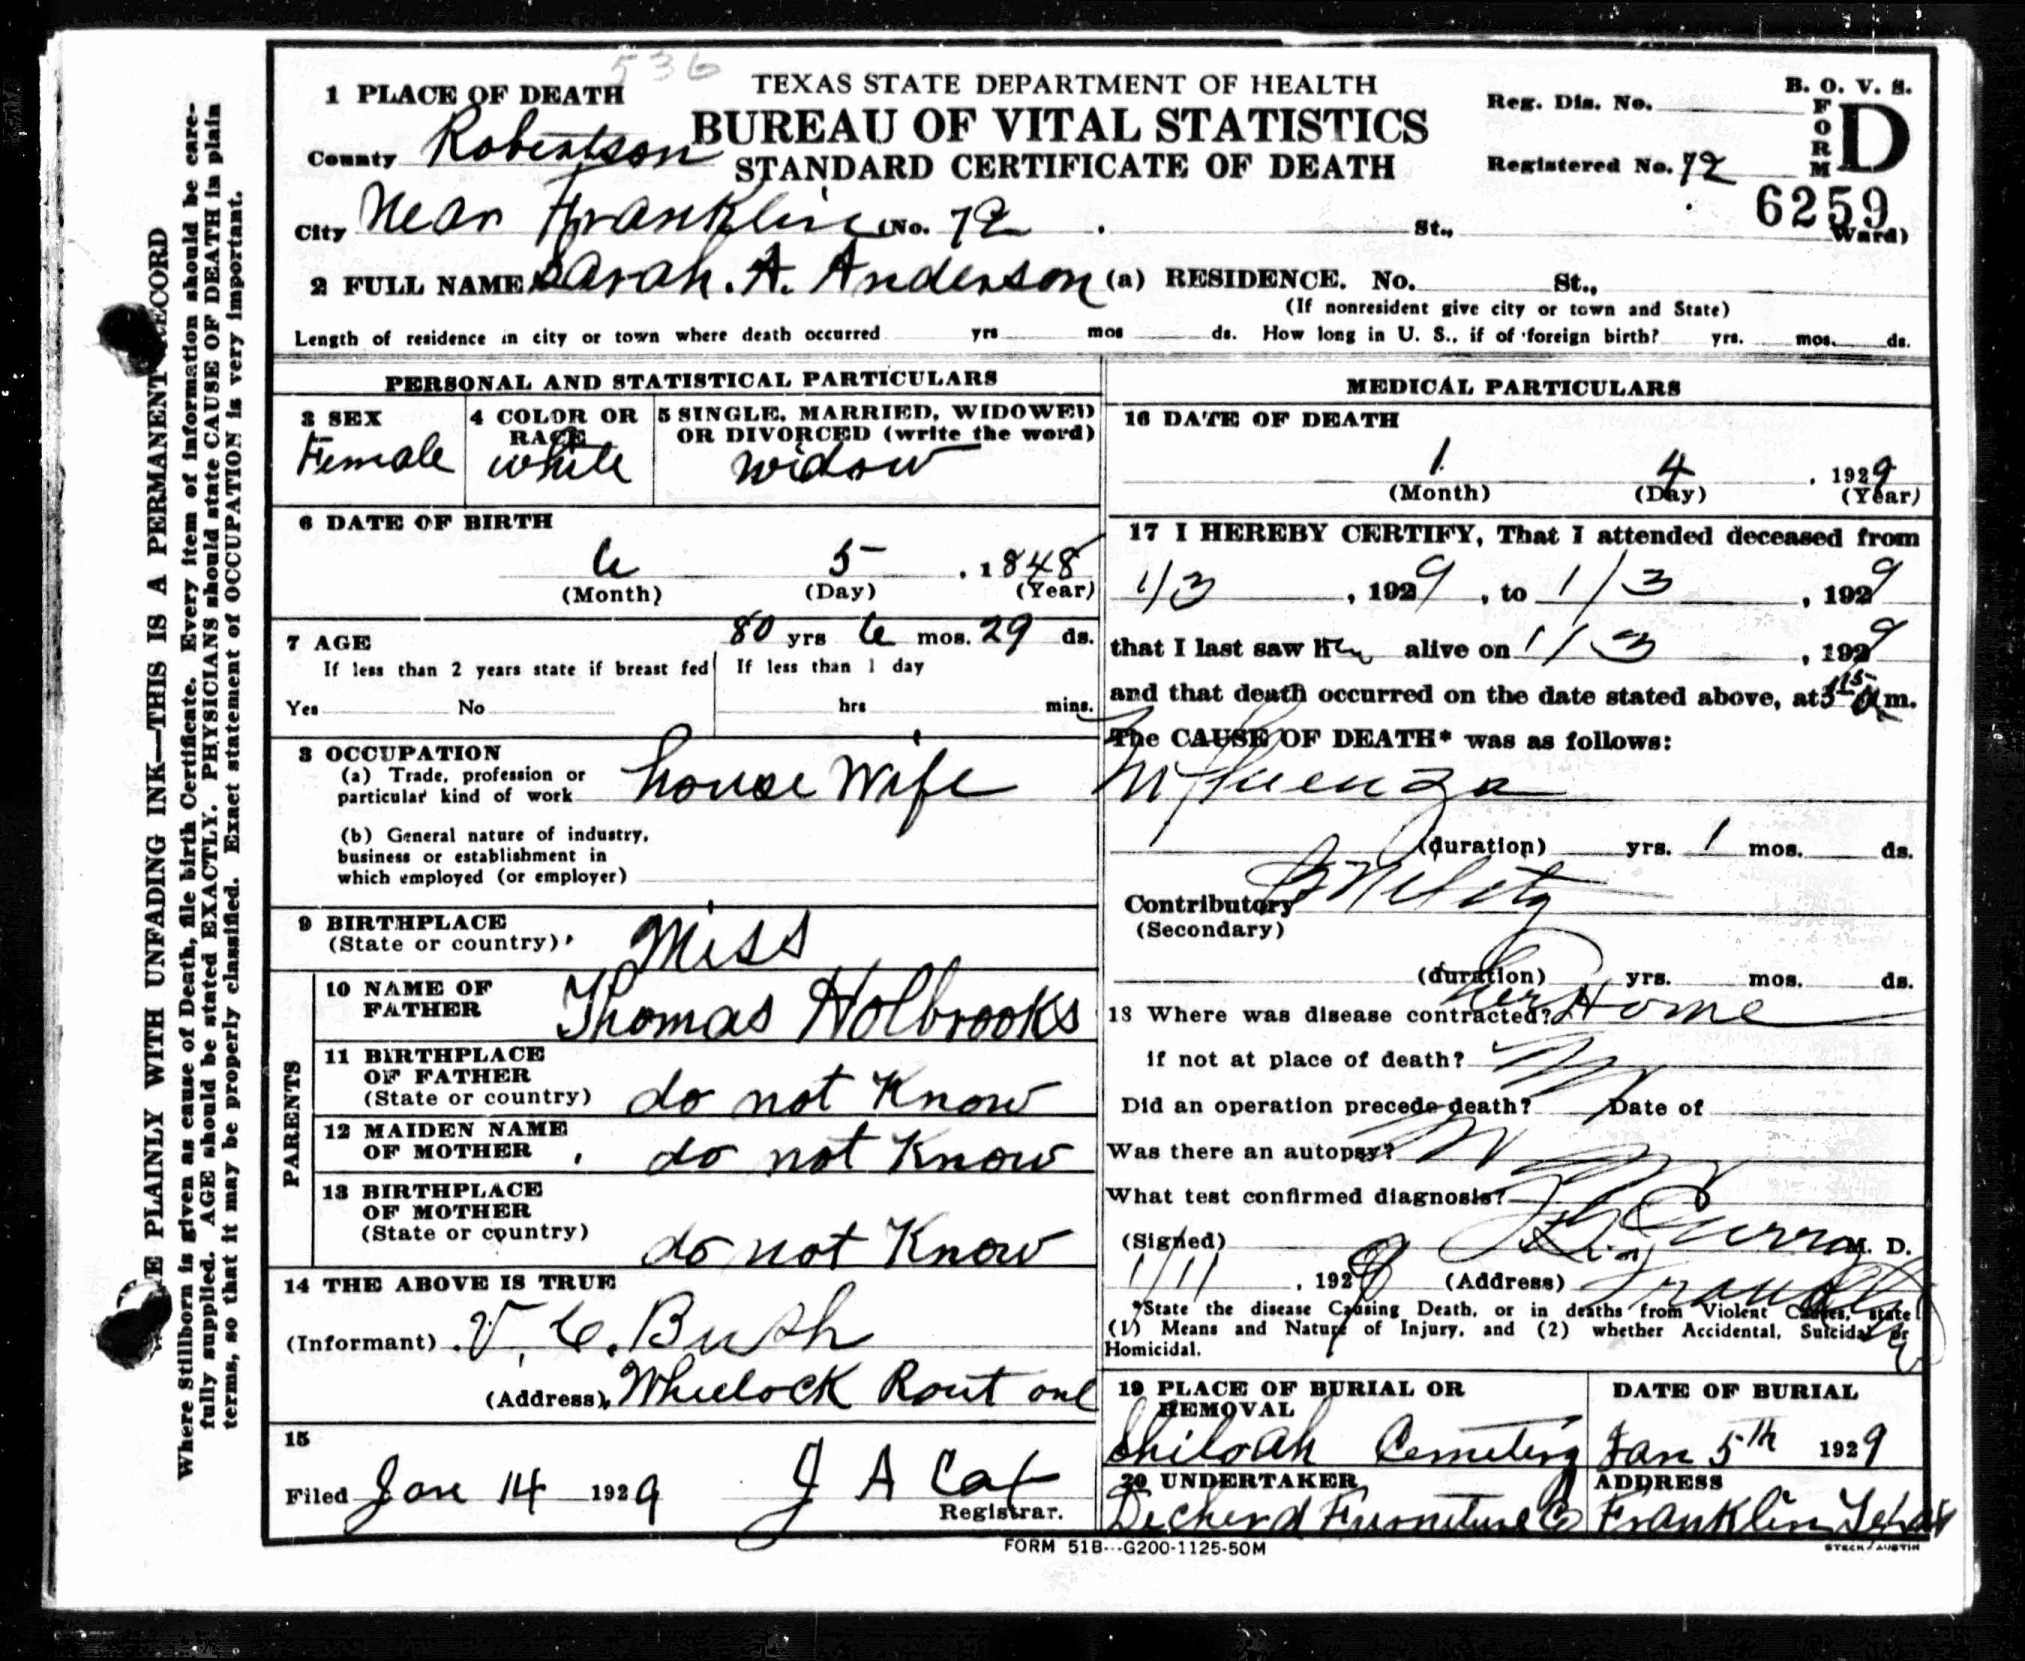 536
TEXAS STATE DEPARTMENT OF HEALTH
BUREAU OF VITAL STATISTICS
STANDARD CERTIFICATE OF DEATH
B. O. V. S.
FORM D
Reg. Dis. No.
Registered No. 72
6259
1 PLACE OF DEATH
County Robertson
City Near Franklin (No. 72 St., Ward)
2 FULL NAME Sarah. A. Anderson (a) RESIDENCE. No. St.,
(If nonresident give city or town and State)
Length of residence in city or town where death occurred yrs mos ds. How long in U. S., if of foreign birth? yrs. mos. ds.
PERSONAL AND STATISTICAL PARTICULARS
3 SEX
Female
4 COLOR OR RACE
white
5 SINGLE, MARRIED, WIDOWED
OR DIVORCED (write the word)
widow
6 DATE OF BIRTH
6 5 , 1848
(Month) (Day) (Year)
7 AGE 80 yrs 6 mos. 29 ds.
If less than 2 years state if breast fed If less than 1 day
Yes No hrs mins.
8 OCCUPATION
(a) Trade, profession or
particular kind of work house wife
(b) General nature of industry,
business or establishment in
which employed (or employer)
9 BIRTHPLACE
(State or country) Miss
PARENTS
10 NAME OF
FATHER Thomas Holbrooks
11 BIRTHPLACE
OF FATHER
(State or country) do not Know
12 MAIDEN NAME
OF MOTHER do not Know
13 BIRTHPLACE
OF MOTHER
(State or country) do not Know
14 THE ABOVE IS TRUE
(Informant) V. C. Bush
(Address) Wheelock Rout one
15
Filed Jan 14 1929 J A Cat
Registrar.
MEDICAL PARTICULARS
16 DATE OF DEATH
1 4 , 1929
(Month) (Day) (Year)
17 I HEREBY CERTIFY, That I attended deceased from
1/3 , 1929 , to 1/3 , 1929
that I last saw her alive on 1/3 , 1929
and that death occurred on the date stated above, at 3 15 a m.
The CAUSE OF DEATH* was as follows:
Influenza
(duration) yrs. 1 mos. ds.
Contributory
(Secondary)
(duration) yrs. mos. ds.
18 Where was disease contracted? her Home
if not at place of death?
Did an operation precede death? Date of
Was there an autopsy?
What test confirmed diagnosis?
(Signed) Curry M. D.
1/11 , 1929 (Address) Franklin
*State the disease Causing Death, or in deaths from Violent Causes, state
(1) Means and Nature of Injury, and (2) whether Accidental, Suicidal or
Homicidal.
19 PLACE OF BURIAL OR
REMOVAL
Shiloah Cemetery
DATE OF BURIAL
Jan 5th 1929
20 UNDERTAKER
Decherd Furniture Co
ADDRESS
Franklin Texas
FORM 51B---G200-1125-50M
STECK, AUSTIN
E PLAINLY WITH UNFADING INK—THIS IS A PERMANENT RECORD
Where Stillborn is given as cause of Death, file birth Certificate. Every item of information should be care-
fully supplied. AGE should be stated EXACTLY. PHYSICIANS should state CAUSE OF DEATH in plain
terms, so that it may be properly classified. Exact statement of OCCUPATION is very important.